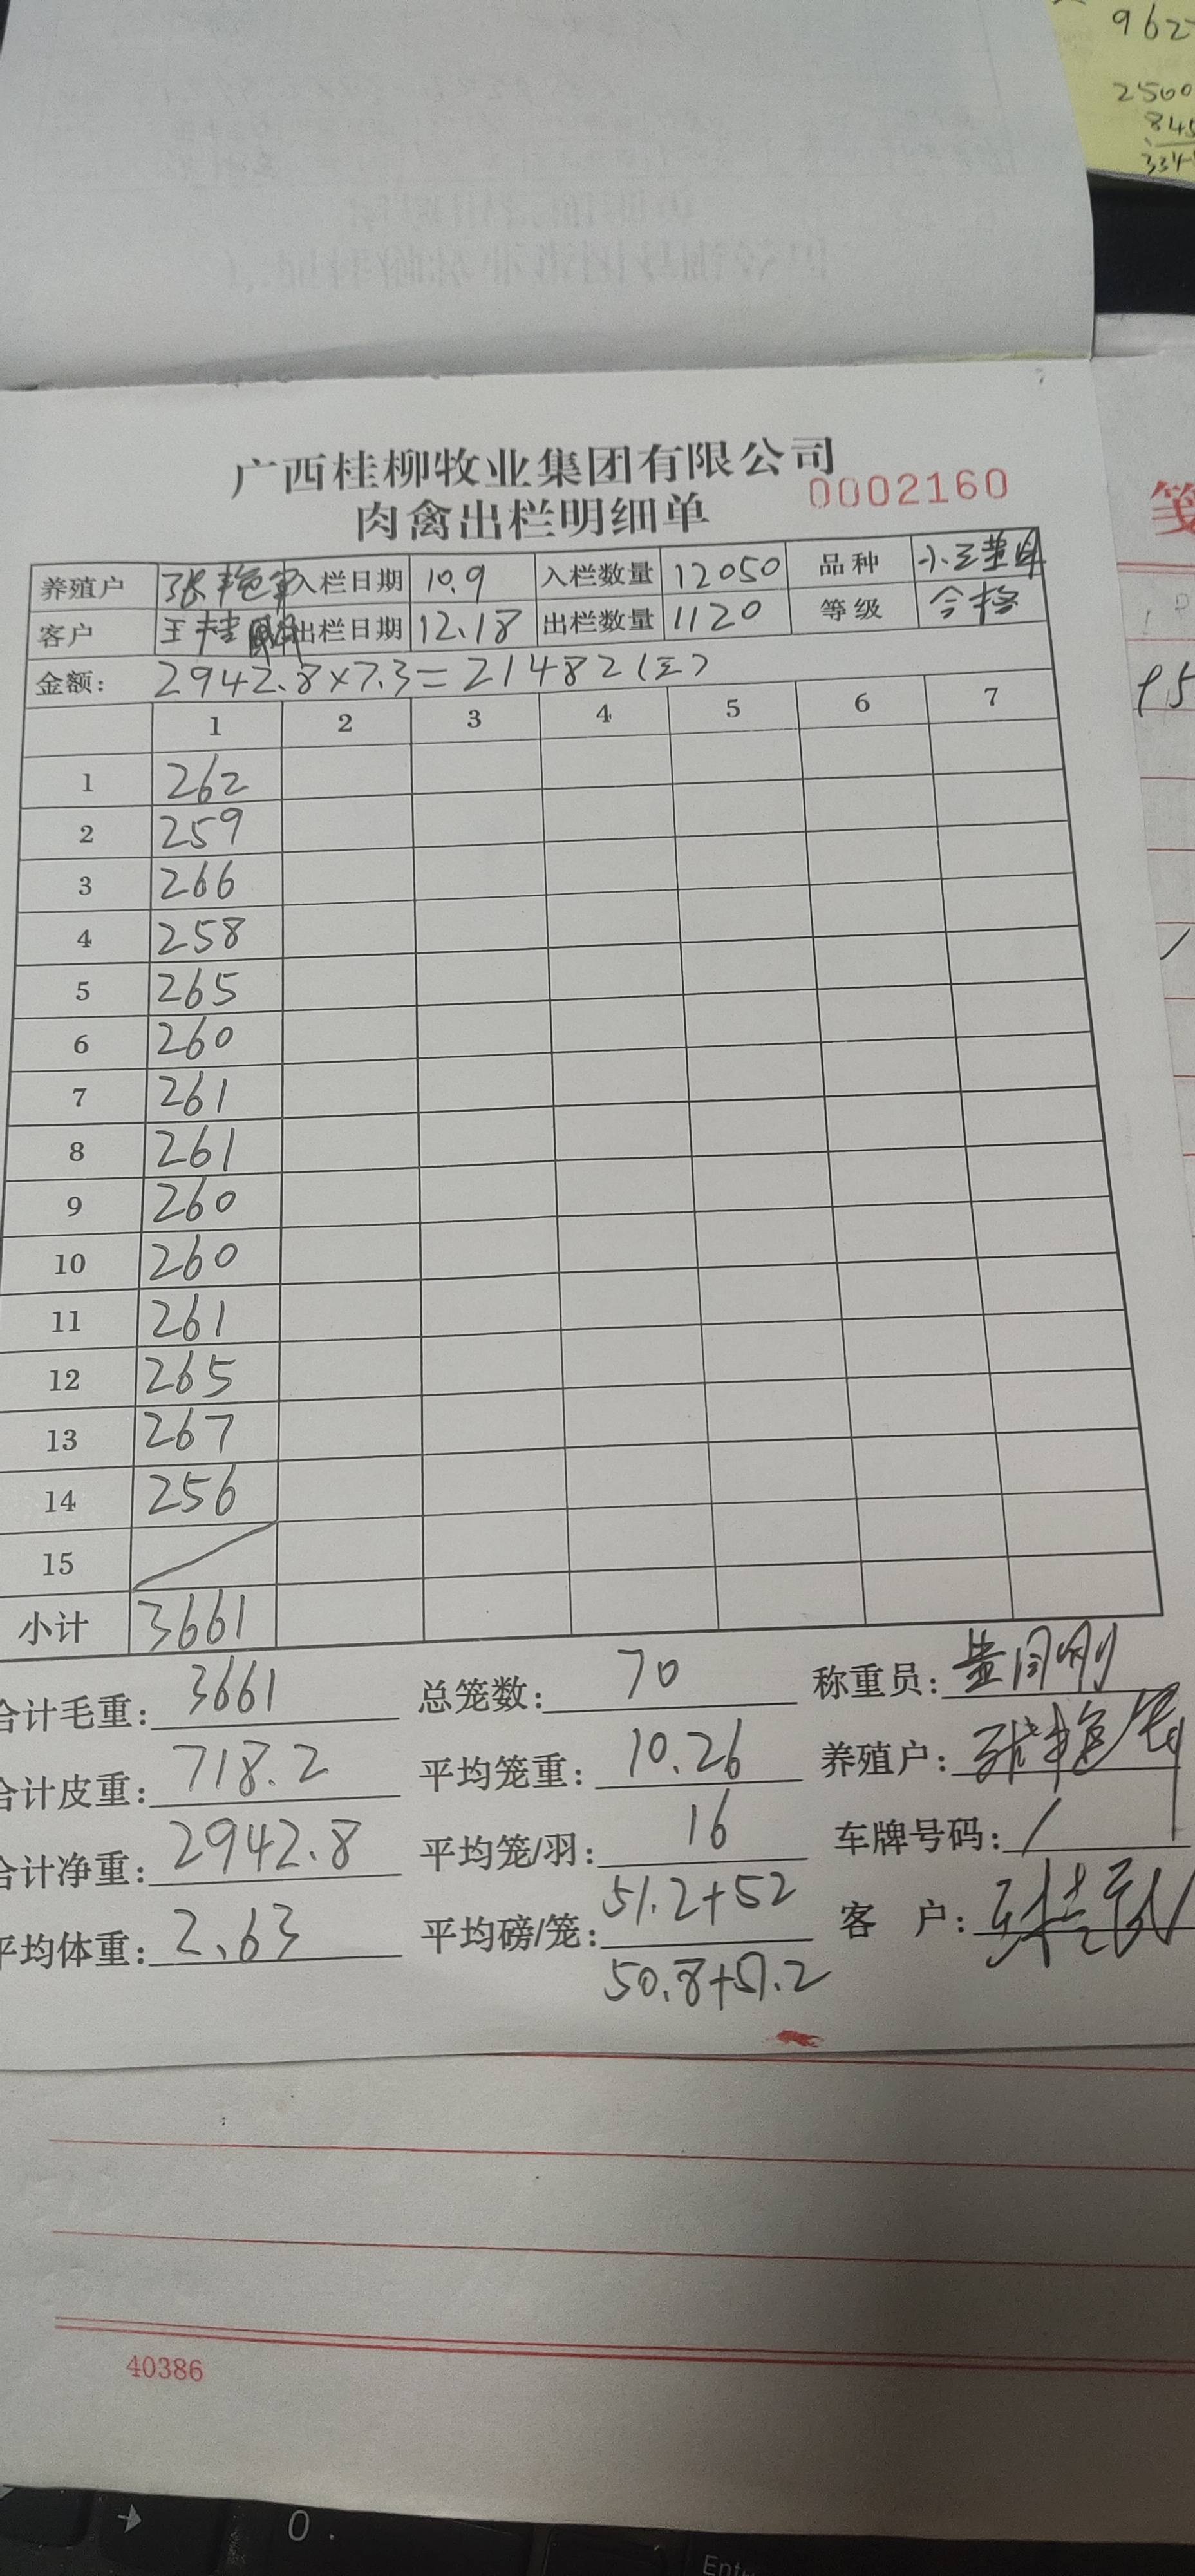 962
2500
845
334
广西桂柳牧业集团有限公司
肉禽出栏明细单 0002160
笺
养殖户 张艳军 入栏日期 10.9 入栏数量 12050 品种 小三黄
客户 王桂 出栏日期 12.18 出栏数量 1120 等级 合格
金额: 2942.8×7.3=21482(元)
1 2 3 4 5 6 7
1 262
2 259
3 266
4 258
5 265
6 260
7 261
8 261
9 260
10 260
11 261
12 265
13 267
14 256
15
小计 3661
合计毛重: 3661 总笼数: 70 称重员:
合计皮重: 718.2 平均笼重: 10.26 养殖户:
合计净重: 2942.8 平均笼/羽: 16 车牌号码: /
平均体重: 2.63 平均磅/笼: 51.2+52 客 户:
50.8+51.2
40386
0 .
Ent